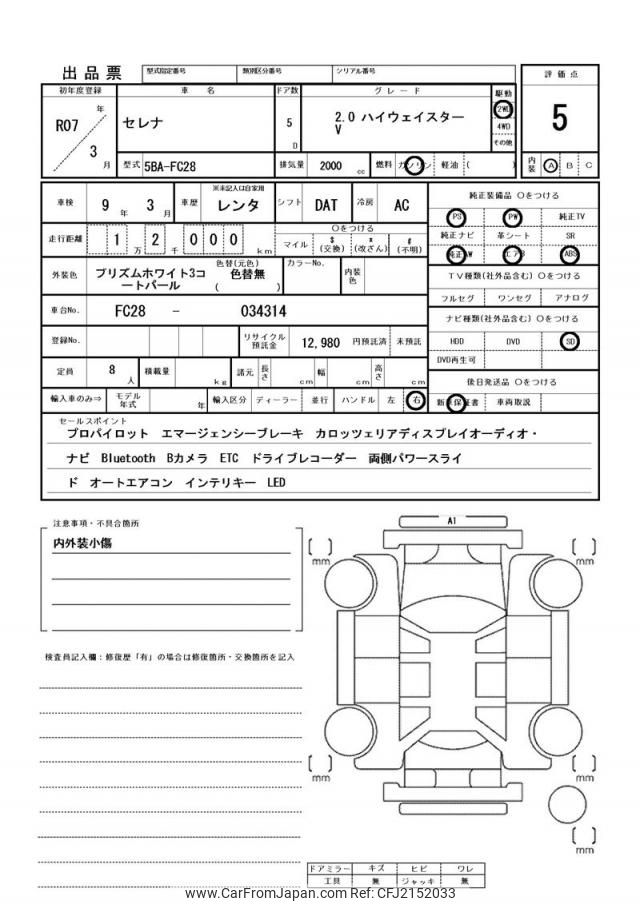 出品票
型式指定番号
類別区分番号
シリアル番号
評価点
5
内装 A B C
初年度登録
車名
ドア数
グレード
駆動
R07年
3月
セレナ
5D
2.0 ハイウェイスター
V
2WD
4WD
その他
型式 5BA-FC28
排気量 2000 cc
燃料 ガソリン 軽油 ( )
車検 9年 3月
車歴
※未記入は自家用
レンタ
シフト DAT
冷房 AC
純正装備品 〇をつける
PS PW 純正TV
純正ナビ 革シート SR
純正AW エアB ABS
走行距離 1万2千000km
〇をつける
マイル $(交換) x(改ざん) #(不明)
外装色
プリズムホワイト3コ
ートパール
色替(元色)
色替無
( )
カラーNo.
内装色
TV種類(社外品含む) 〇をつける
フルセグ ワンセグ アナログ
車台No. FC28 - 034314
ナビ種類(社外品含む) 〇をつける
HDD DVD SD
DVD再生可
登録No.
リサイクル預託金 12,980 円預託済 未預託
定員 8人
積載量 kg
諸元 長さ cm 幅 cm 高さ cm
後日発送品 〇をつける
新車保証書 車両取説
輸入車のみ⇒ モデル年式 年 輸入区分 ディーラー 並行 ハンドル 左 右
セールスポイント
プロパイロット エマージェンシーブレーキ カロッツェリアディスプレイオーディオ・
ナビ Bluetooth Bカメラ ETC ドライブレコーダー 両側パワースライ
ド オートエアコン インテリキー LED
注意事項・不具合箇所
内外装小傷
検査員記入欄：修復歴「有」の場合は修復箇所・交換箇所を記入
A1
[ ] mm
[ ] mm
[ ] mm
[ ] mm
[ ] mm
ドアミラー キズ ヒビ ワレ
工具 無 ジャッキ 無
www.CarFromJapan.com Ref: CFJ2152033